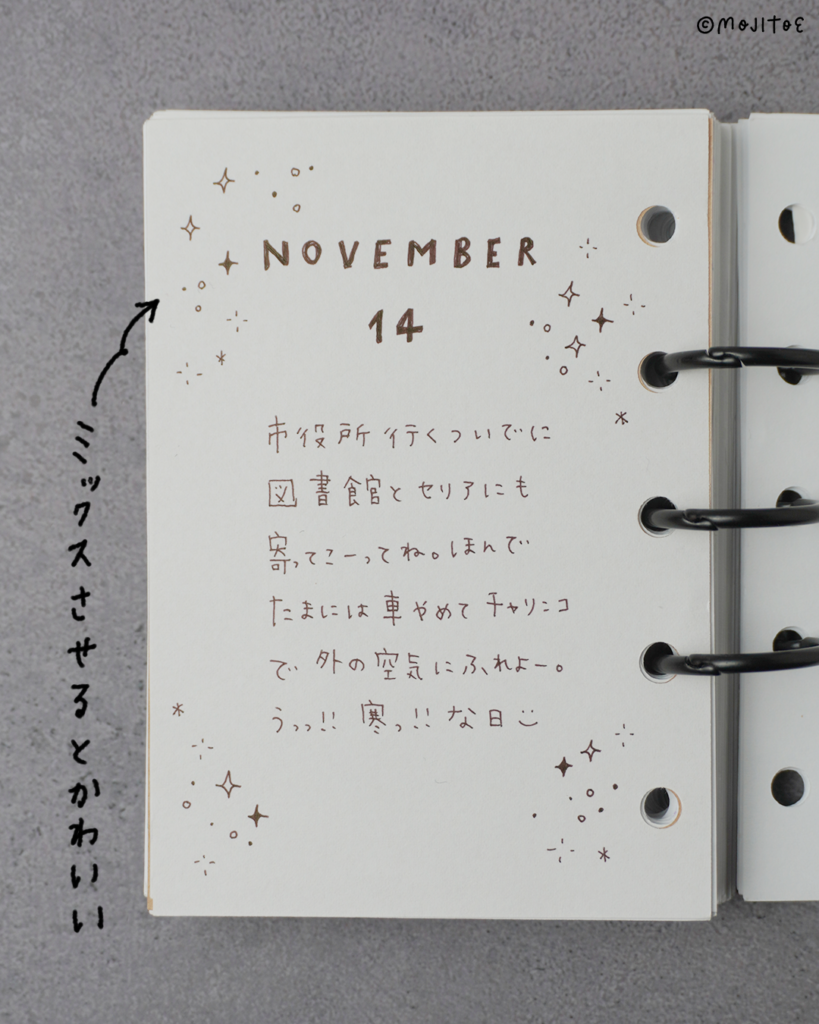 ©MOJITOE
NOVEMBER
14
市役所行くついでに
図書館とセリアにも
寄ってこーってね。ほんで
たまには車やめてチャリンコ
で外の空気にふれよー。
うっっ!!寒っ!!な日
ミックスさせるとかわいい